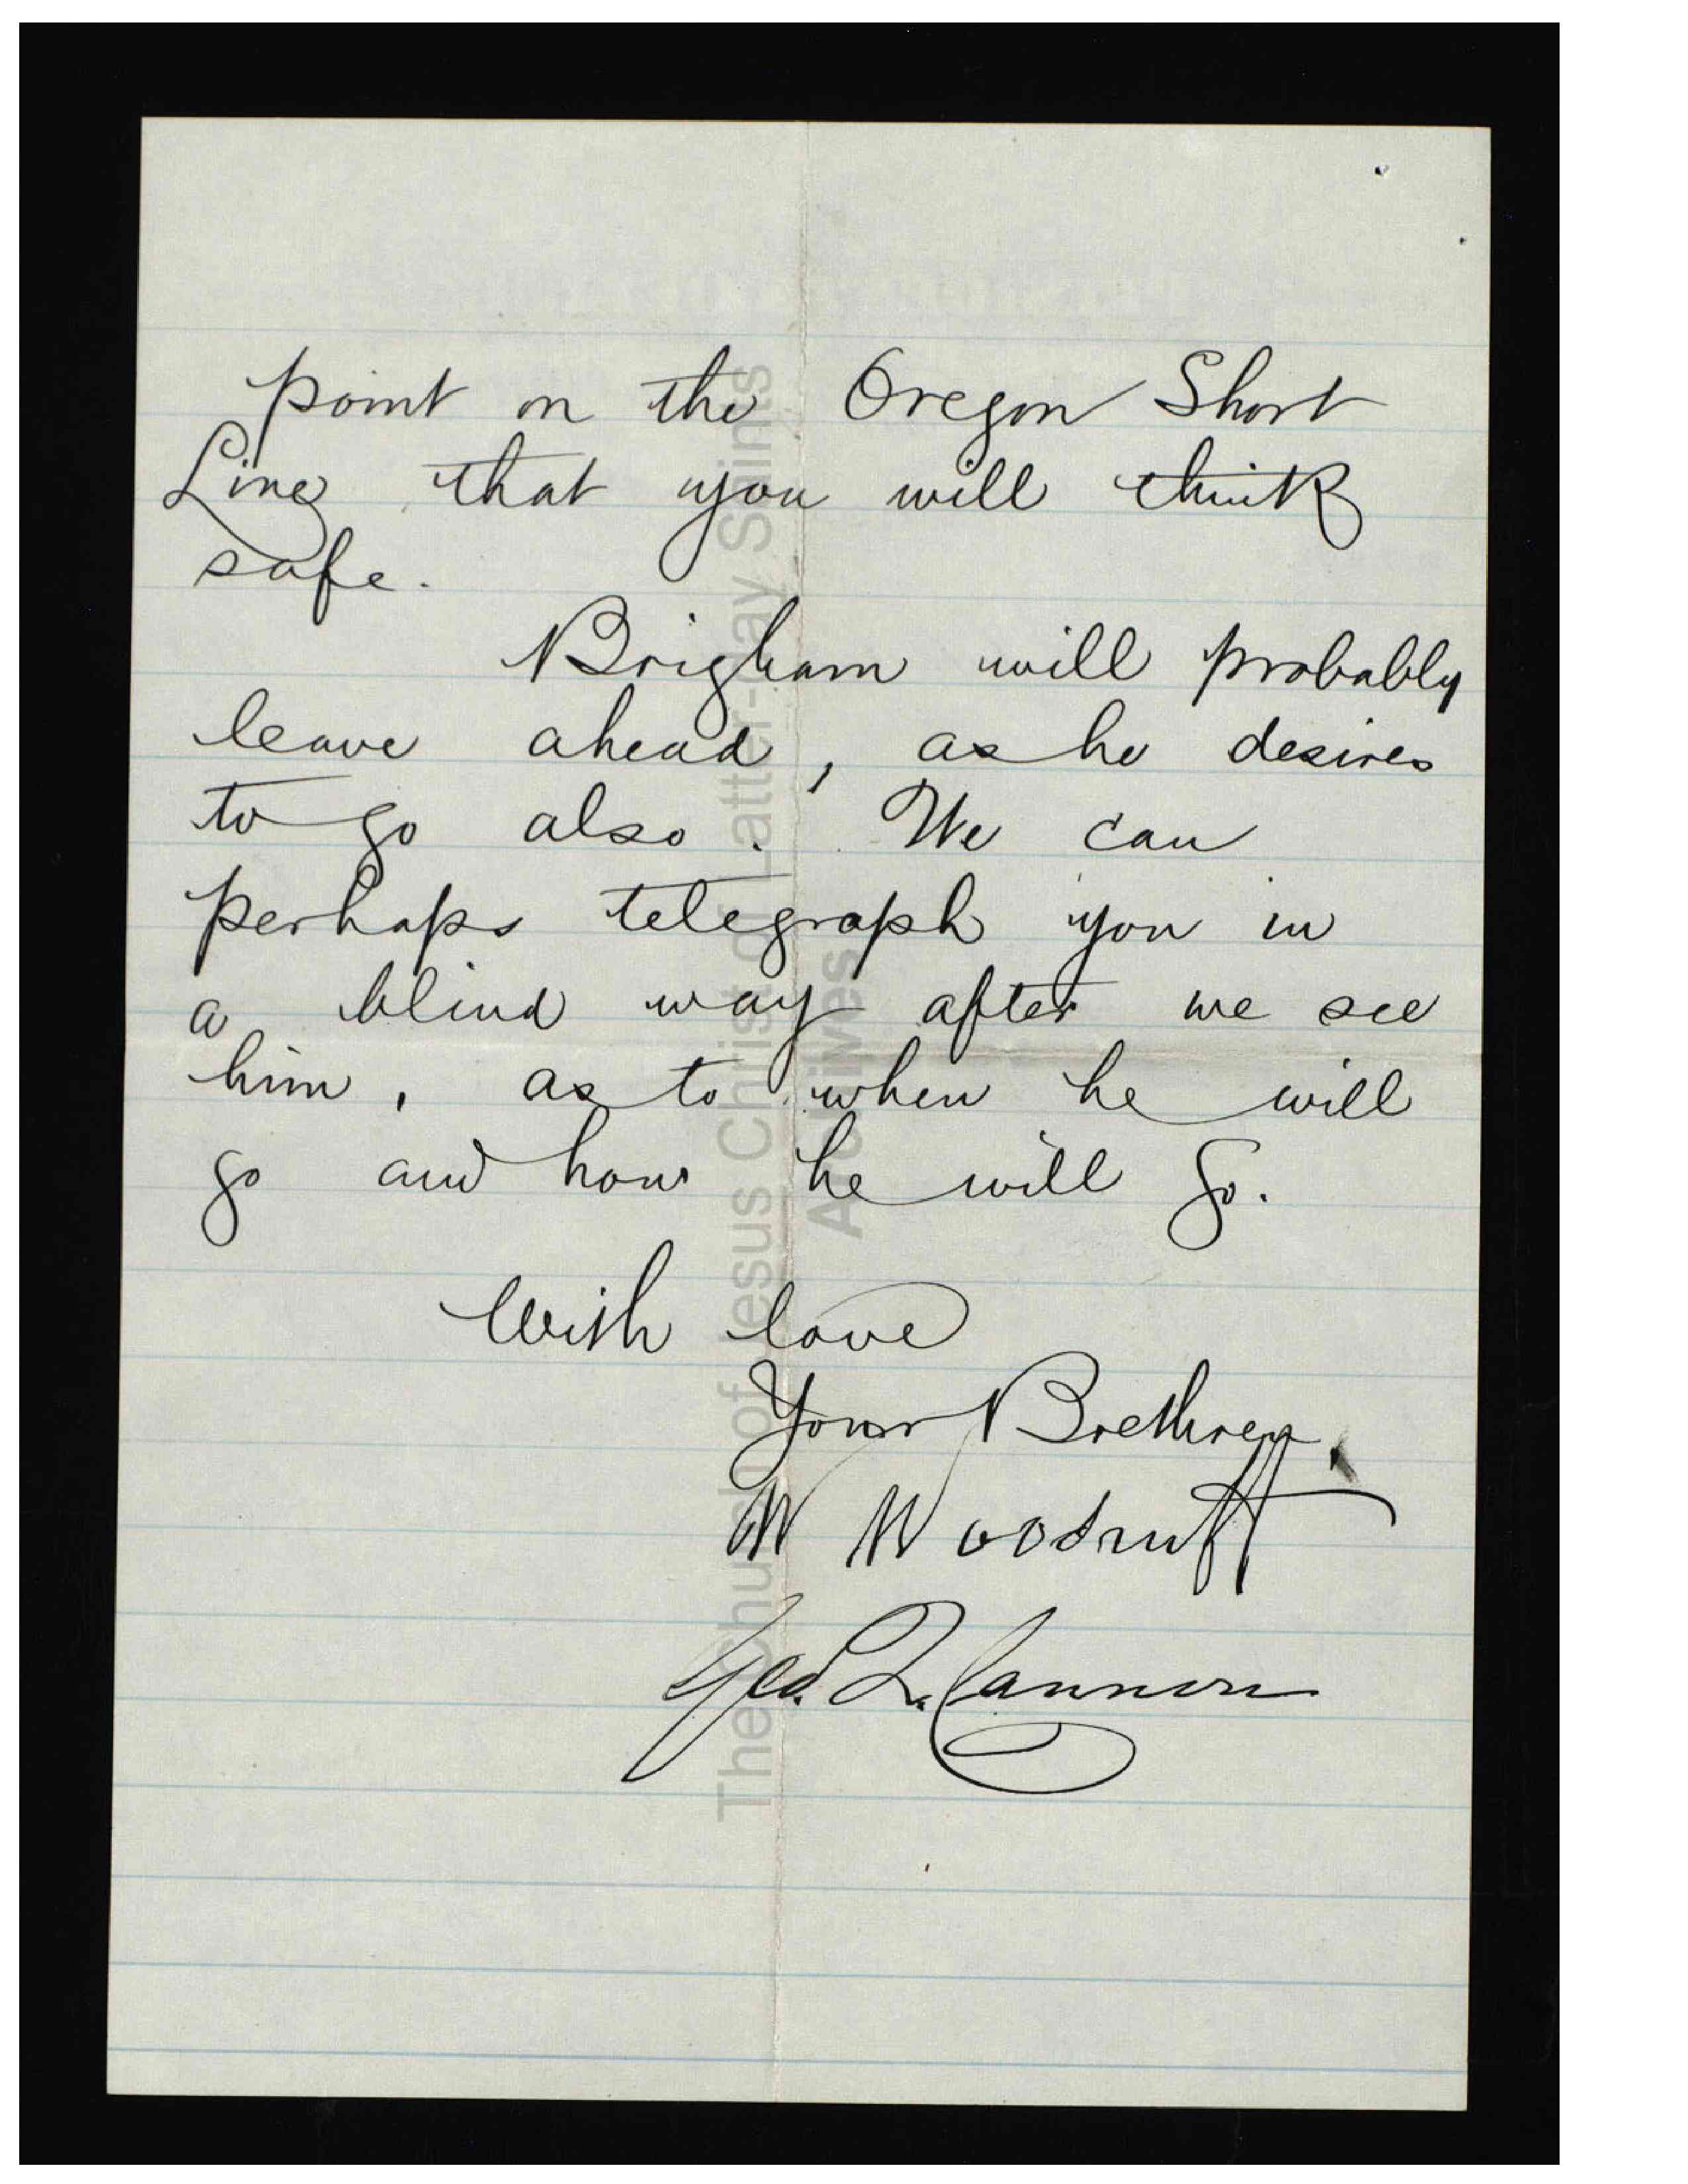 point on the Oregon Short
Line that you will think
safe.
Brigham will probably
leave ahead, as he desires
to go also. We can
perhaps telegraph you in
a blind way after we see
him, as to when he will
go and how he will go.
With love
Your Brethren,
W Woodruff
Geo. Q. Cannon
The Church of Jesus Christ of Latter-day Saints
Archives